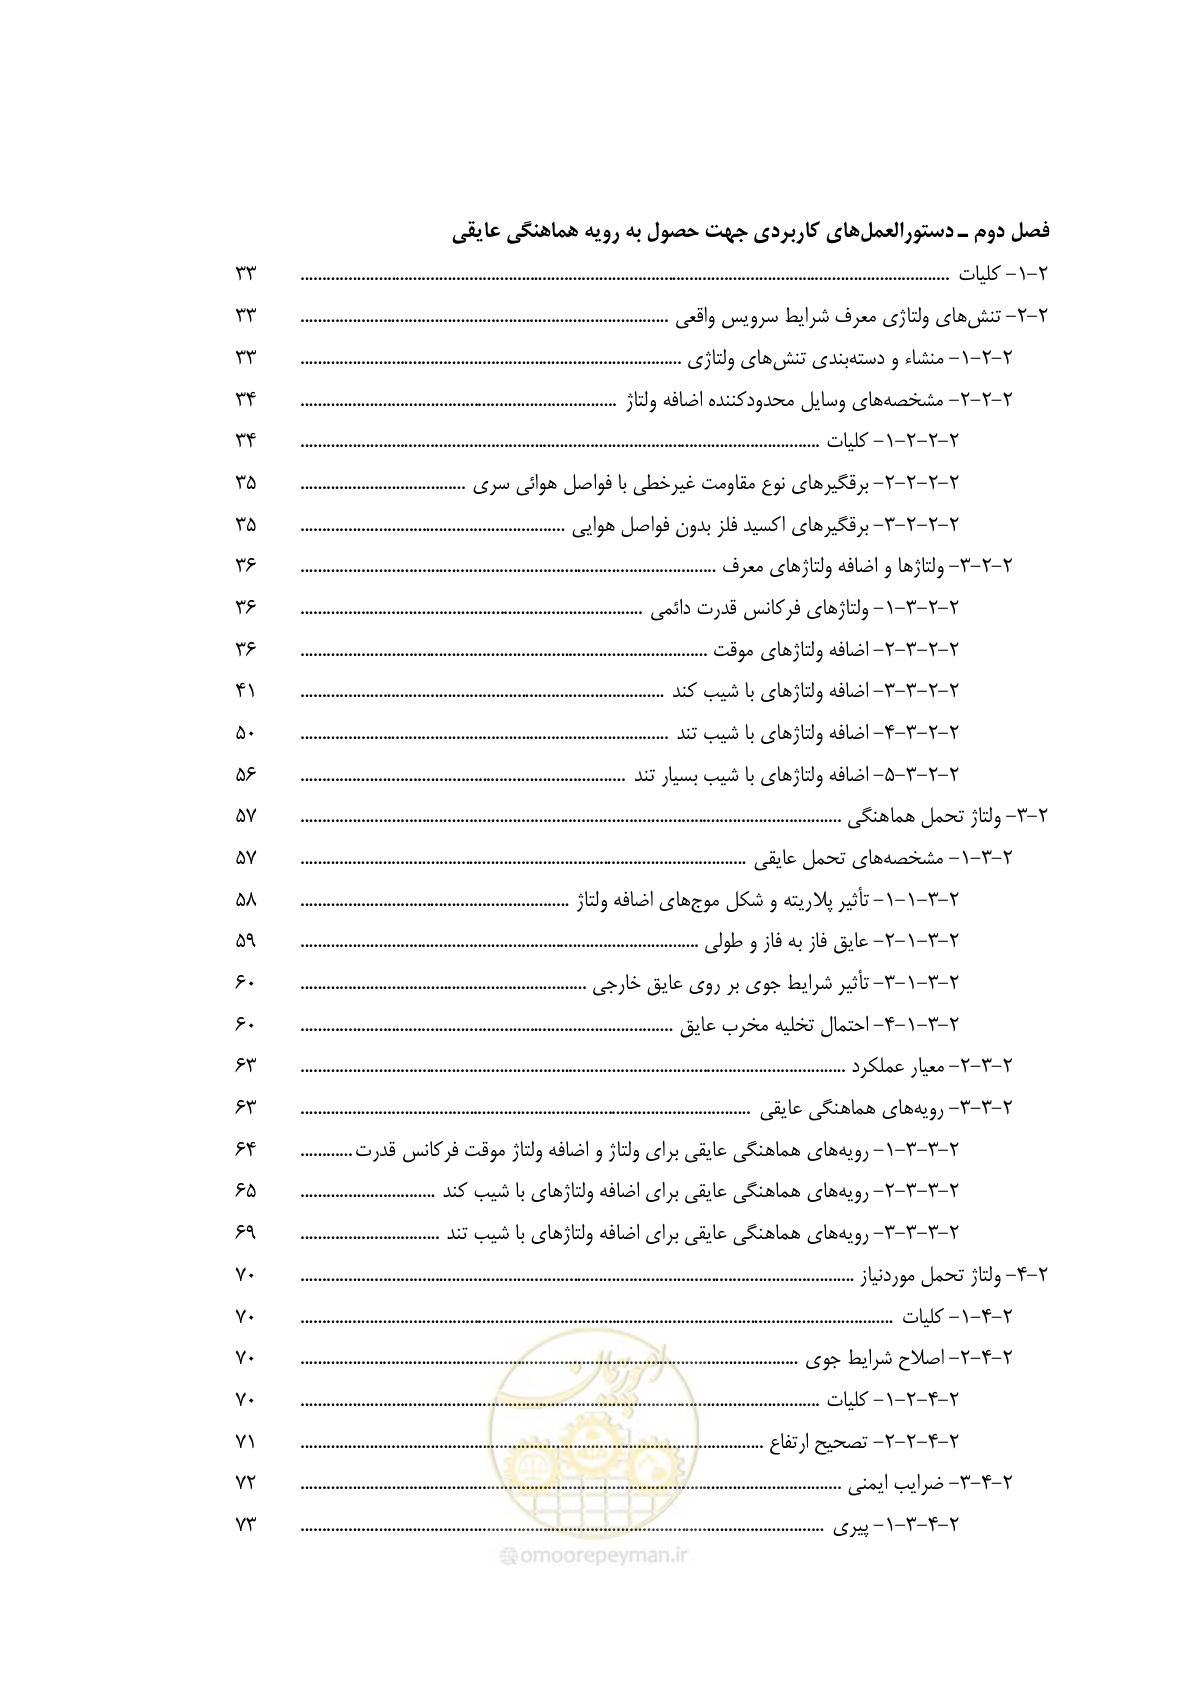 فصل دوم ـ دستورالعمل‌های کاربردی جهت حصول به رویه هماهنگی عایقی
۲-۱- کلیات ........ ۳۳
۲-۲- تنش‌های ولتاژی معرف شرایط سرویس واقعی ........ ۳۳
۲-۲-۱- منشاء و دسته‌بندی تنش‌های ولتاژی ........ ۳۳
۲-۲-۲- مشخصه‌های وسایل محدودکننده اضافه ولتاژ ........ ۳۴
۲-۲-۲-۱- کلیات ........ ۳۴
۲-۲-۲-۲- برقگیرهای نوع مقاومت غیرخطی با فواصل هوائی سری ........ ۳۵
۲-۲-۲-۳- برقگیرهای اکسید فلز بدون فواصل هوایی ........ ۳۵
۲-۲-۳- ولتاژها و اضافه ولتاژهای معرف ........ ۳۶
۲-۲-۳-۱- ولتاژهای فرکانس قدرت دائمی ........ ۳۶
۲-۲-۳-۲- اضافه ولتاژهای موقت ........ ۳۶
۲-۲-۳-۳- اضافه ولتاژهای با شیب کند ........ ۴۱
۲-۲-۳-۴- اضافه ولتاژهای با شیب تند ........ ۵۰
۲-۲-۳-۵- اضافه ولتاژهای با شیب بسیار تند ........ ۵۶
۲-۳- ولتاژ تحمل هماهنگی ........ ۵۷
۲-۳-۱- مشخصه‌های تحمل عایقی ........ ۵۷
۲-۳-۱-۱- تأثیر پلاریته و شکل موج‌های اضافه ولتاژ ........ ۵۸
۲-۳-۱-۲- عایق فاز به فاز و طولی ........ ۵۹
۲-۳-۱-۳- تأثیر شرایط جوی بر روی عایق خارجی ........ ۶۰
۲-۳-۱-۴- احتمال تخلیه مخرب عایق ........ ۶۰
۲-۳-۲- معیار عملکرد ........ ۶۳
۲-۳-۳- رویه‌های هماهنگی عایقی ........ ۶۳
۲-۳-۳-۱- رویه‌های هماهنگی عایقی برای ولتاژ و اضافه ولتاژ موقت فرکانس قدرت ........ ۶۴
۲-۳-۳-۲- رویه‌های هماهنگی عایقی برای اضافه ولتاژهای با شیب کند ........ ۶۵
۲-۳-۳-۳- رویه‌های هماهنگی عایقی برای اضافه ولتاژهای با شیب تند ........ ۶۹
۲-۴- ولتاژ تحمل موردنیاز ........ ۷۰
۲-۴-۱- کلیات ........ ۷۰
۲-۴-۲- اصلاح شرایط جوی ........ ۷۰
۲-۴-۲-۱- کلیات ........ ۷۰
۲-۴-۲-۲- تصحیح ارتفاع ........ ۷۱
۲-۴-۳- ضرایب ایمنی ........ ۷۲
۲-۴-۳-۱- پیری ........ ۷۳
امور پیمان
@omoorepeyman.ir